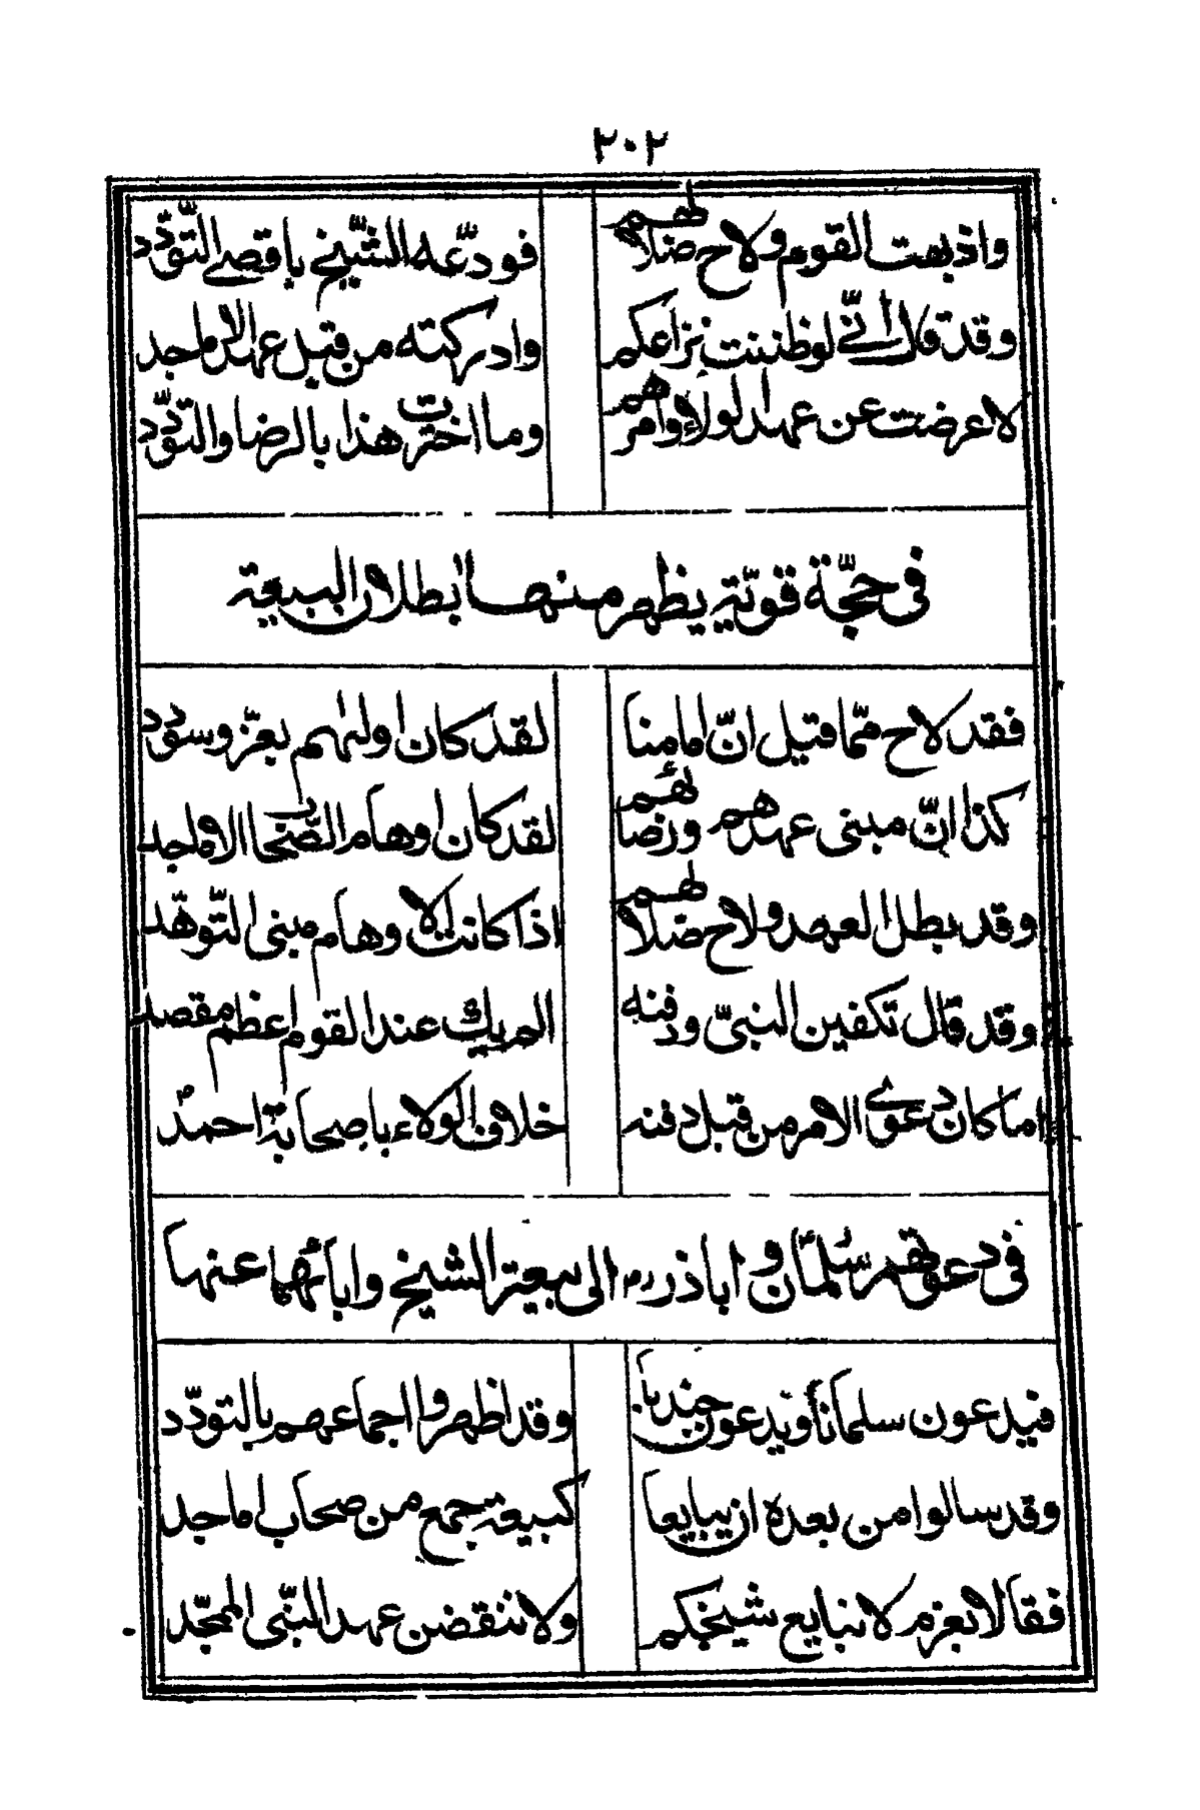 ٢٠٢
واذ بهت القوم ولاح ضلالهم فودّعه الشّيخ باقصے التّودّد
وقد قال انّي لو ظننت نزاعكم وادركته من قبل عهد الاماجد
لاعرضت عن عهد الولاء وامرهم وما اخترت هذا بالرضا والتّودّد
فى حجّة قويّة يظهر منها بطلان البيعة
فقد لاح ممّا قيل انّ امامنا لقد كان اولٰهم بعزّ وسودد
كذا انّ مبنى عهدهم ورضائهم لقد كان اوهام الصّحاب الاماجد
وقد بطل العهد ولاح ضلالهم اذا كانت الاوهام مبنى التّوهّد
وقد قال تكفين النبىّ ودفنه الم يك عند القوم اعظم مقصد
اما كان دعوى الامر من قبل دفنه خلاف الولاء يا صحابة احمد
فى دعوتهم سلمان و اباذر رم الى بيعة الشيخ وابائهما عنها
فيدعون سلمانا ويدعون جندبا وقد اظهروا اجماعهم بالتودّد
وقد سالوا من بعده ان يبايعا كبيعة جمع من صحاب اماجد
فقالا بعزم لا نبايع شيخكم ولا ننقضن عهد النبّى الممجّد